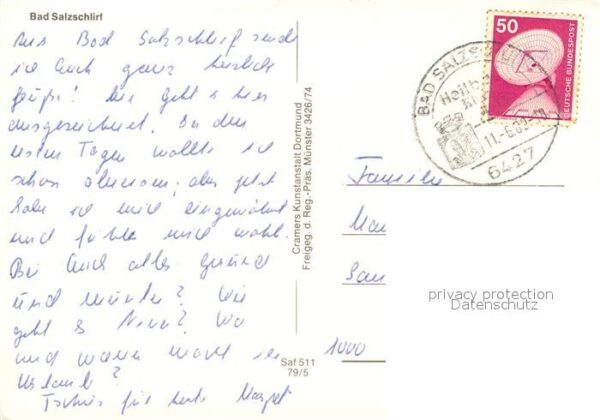 Bad Salzschlirf
Aus Bad Salzschlirf sende
ich Euch ganz herzliche
Grüße! Mir geht es hier
ausgezeichnet. In den
ersten Tagen wollte ich
schon abreisen, aber jetzt
habe ich mich eingewöhnt
und fühle mich wohl.
Bei Euch alles gesund
und munter? Wie
geht es
und wann macht ihr
Urlaub?
Tschüs für heute Margret
Cramers Kunstanstalt Dortmund
Freigeg. d. Reg.-Präs. Münster 3426/74
Saf 511
79/5
50
DEUTSCHE BUNDESPOST
BAD SALZS
Heilb
11.-6.80
6427
Familie
1000
privacy protection
Datenschutz